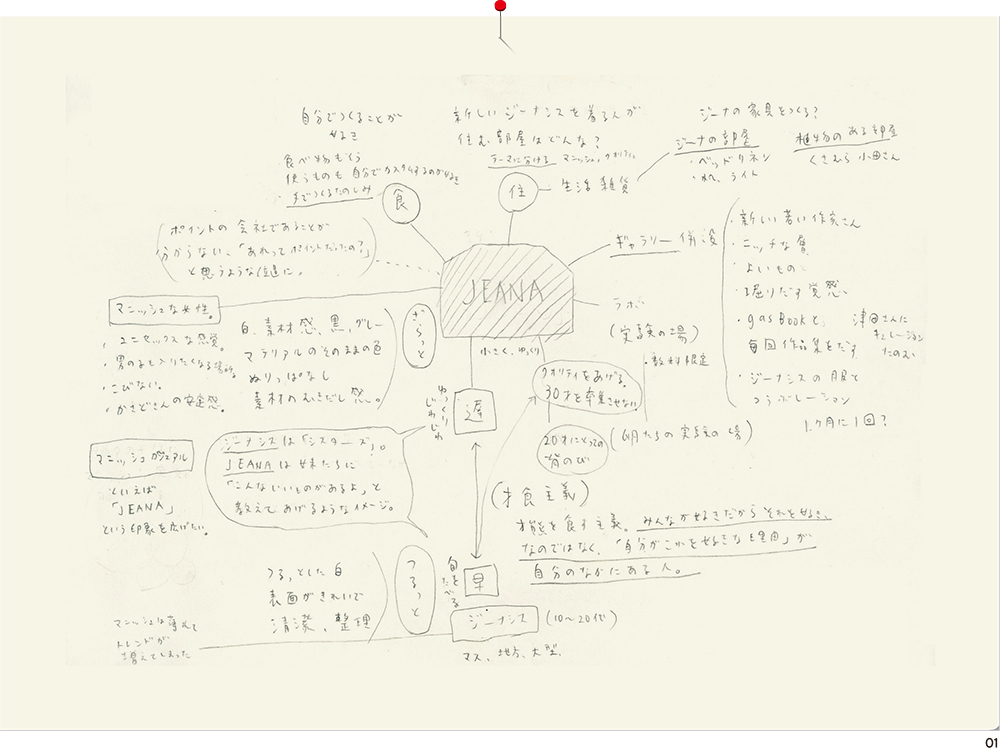 自分でつくることが
好き
食べ物もそう
使うものも自分でカスタムするのが好き
手でつくるたのしみ
食
新しいジーナシスを着る人が
住む部屋はどんな?
テーマに分ける マニッシュ、クオリティ
住
生活雑貨
ジーナの家具をつくる?
ジーナの部屋
・ベッドリネン
ライト
植物のある部屋
くさむら 小田さん
ポイントの会社であることが
分からない、「あれってポイントだったの?」
と思うような位置に。
JEANA
ギャラリー併設
・新しい若い作家さん
・ニッチな
・よいもの
・掘りだす覚悟、
・gas Bookと
毎回作品集をだす
津田さんに
キュレーション
たのむ
・ジーナシスの服と
コラボレーション
1ヶ月に1回?
ラボ
(実験の場)
・数料限定
マニッシュな女性。
・ユニセックスな感覚。
・男の子も入りたくなる場所。
・こびない。
・かさどさんの安定感。
白、素材感、黒、グレー
マテリアルのそのままの色
ぬりっぱなし
素材のむきだし感。
ざらっと
小さく、ゆっくり
遅
ゆっくり
じわじわ
クオリティをあげる。
30才を卒業させない。
20才にとっての
背のび
(卵たちの実験の場)
マニッシュカジュアル
といえば
「JEANA」
という印象を広げたい。
ジーナシスは「シスターズ」。
JEANAは妹たちに
「こんないいものがあるよ」と
教えてあげるようなイメージ。
(才食主義)
才能を食す主義。みんなが好きだからそれを好き、
なのではなく、「自分がこれを好きな理由」が
自分のなかにある人。
つるっとした白
表面がきれいで
清潔、整理
つるっと
旬を
たべる
早
ジーナシス (10〜20代)
マス、地方、大型、
マニッシュは薄れて
トレンドが
増えてしまった
01